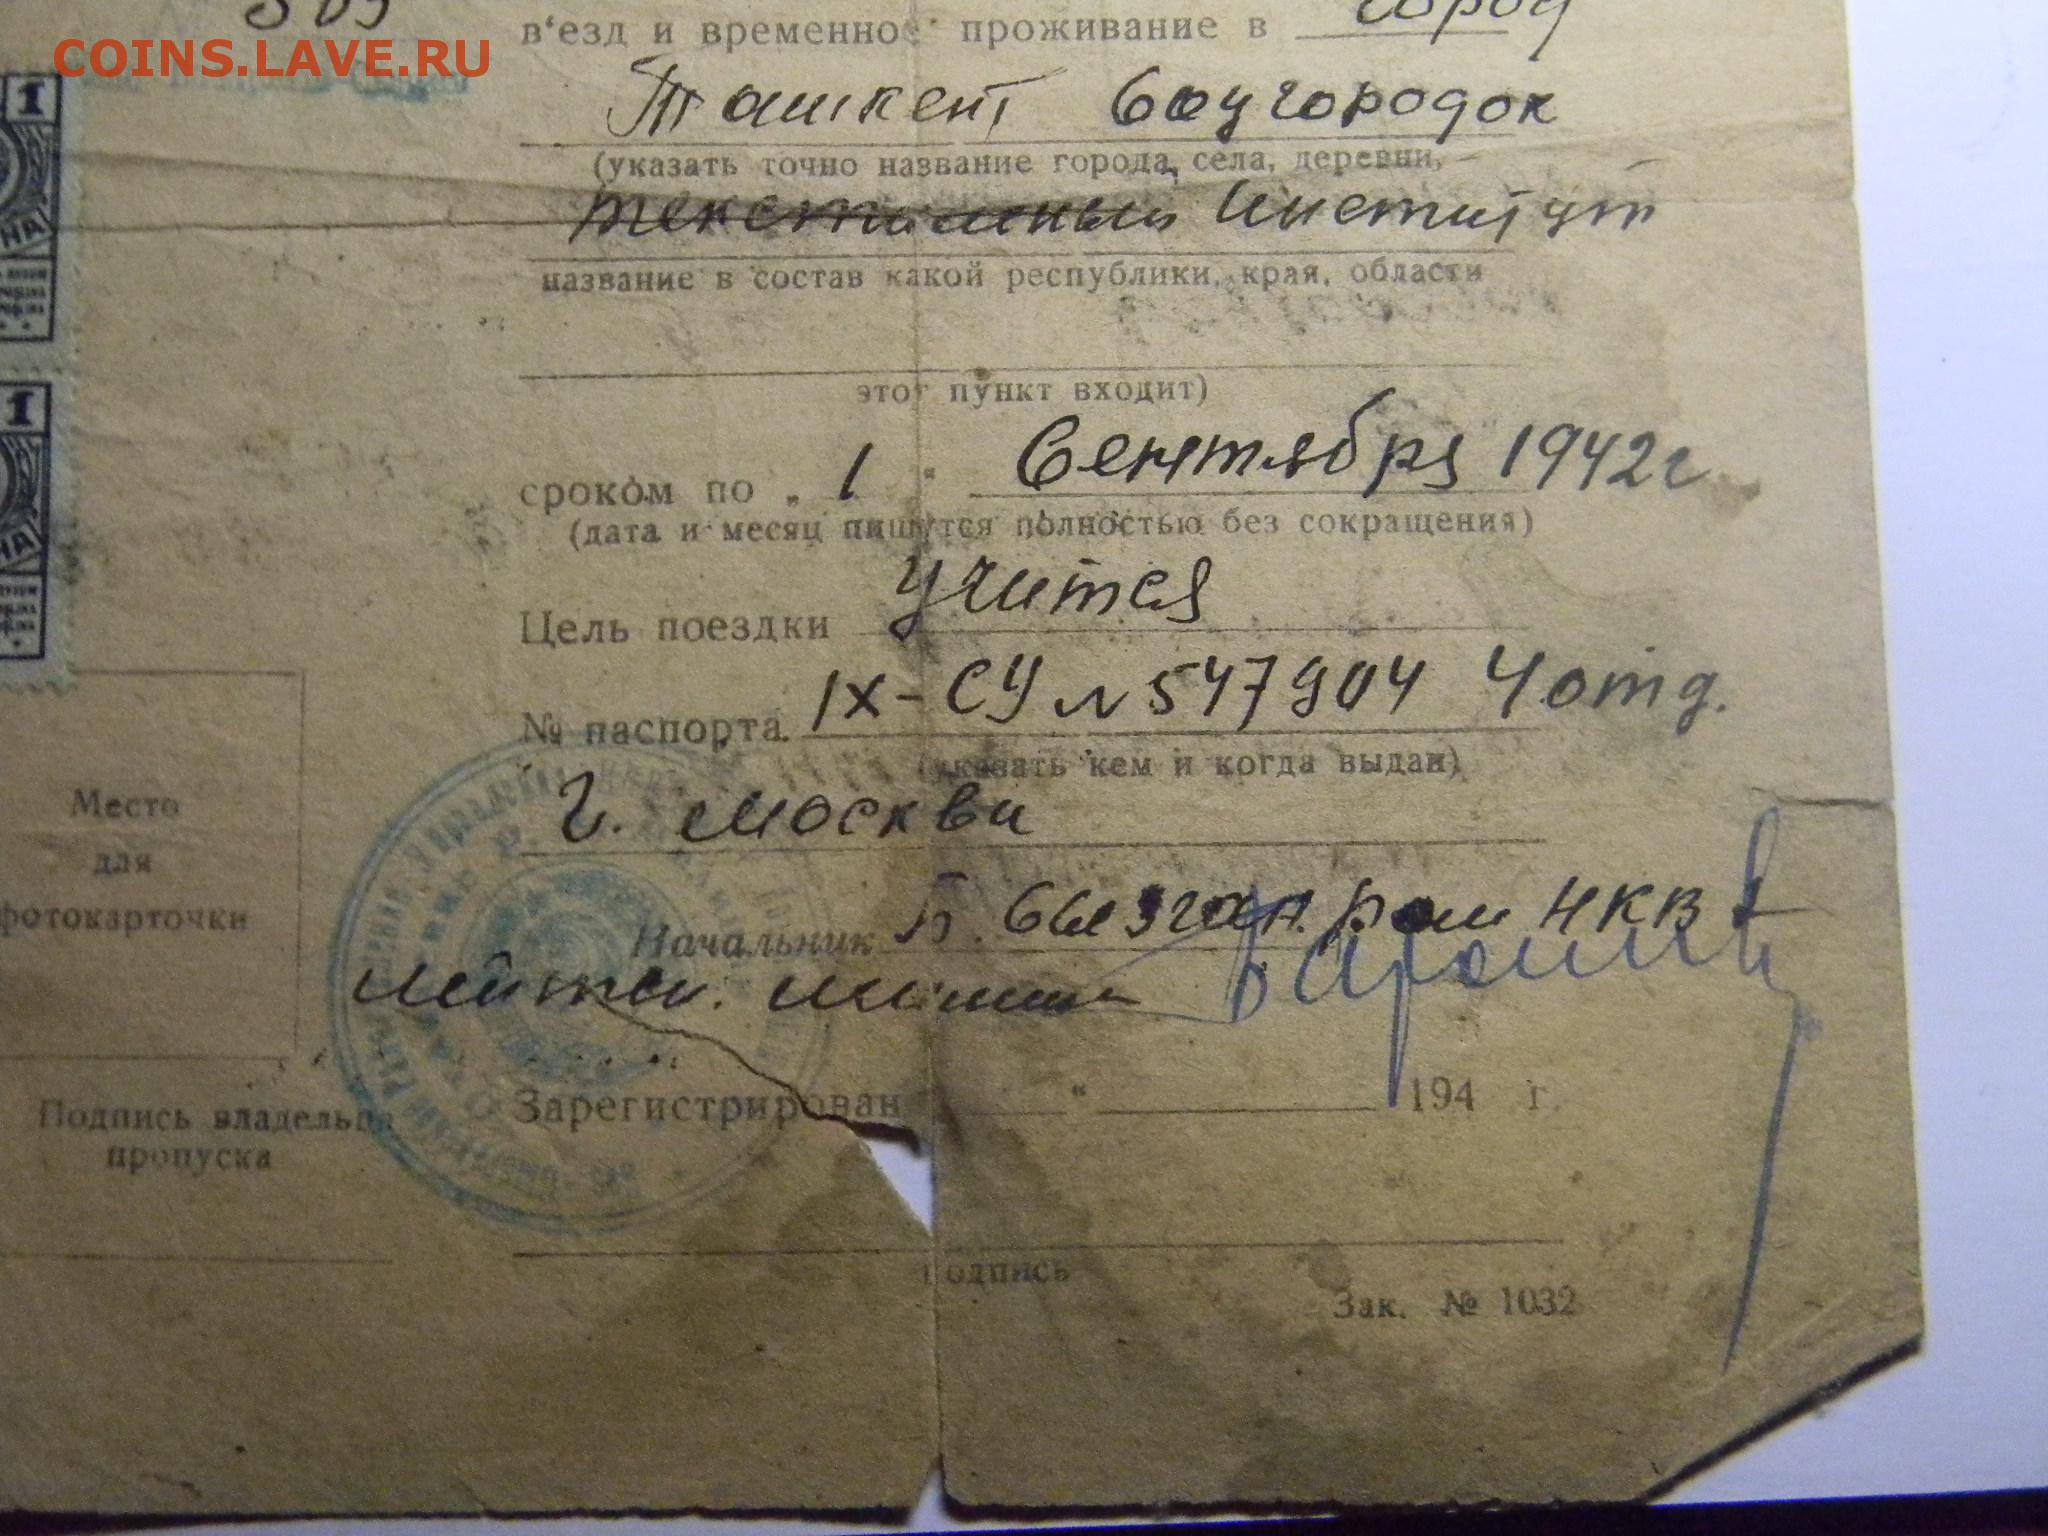 COINS.LAVE.RU
в'езд и временное проживание в город
Ташкент Соцгородок
(указать точно название города, села, деревни,
текстильный Институт
название в состав какой республики, края, области
этот пункт входит)
сроком по „ 1 " Сентября 1942 г
(дата и месяц пишутся полностью без сокращения)
Цель поездки учится
№ паспорта IX-СУ № 547904 4 отд.
(указать кем и когда выдан)
г. Москви
Начальник НКВД
Зарегистрирован " 194 г.
подпись
Зак. № 1032
1
НА
1
НА
Место
для
фотокарточки
Подпись владельца
пропуска